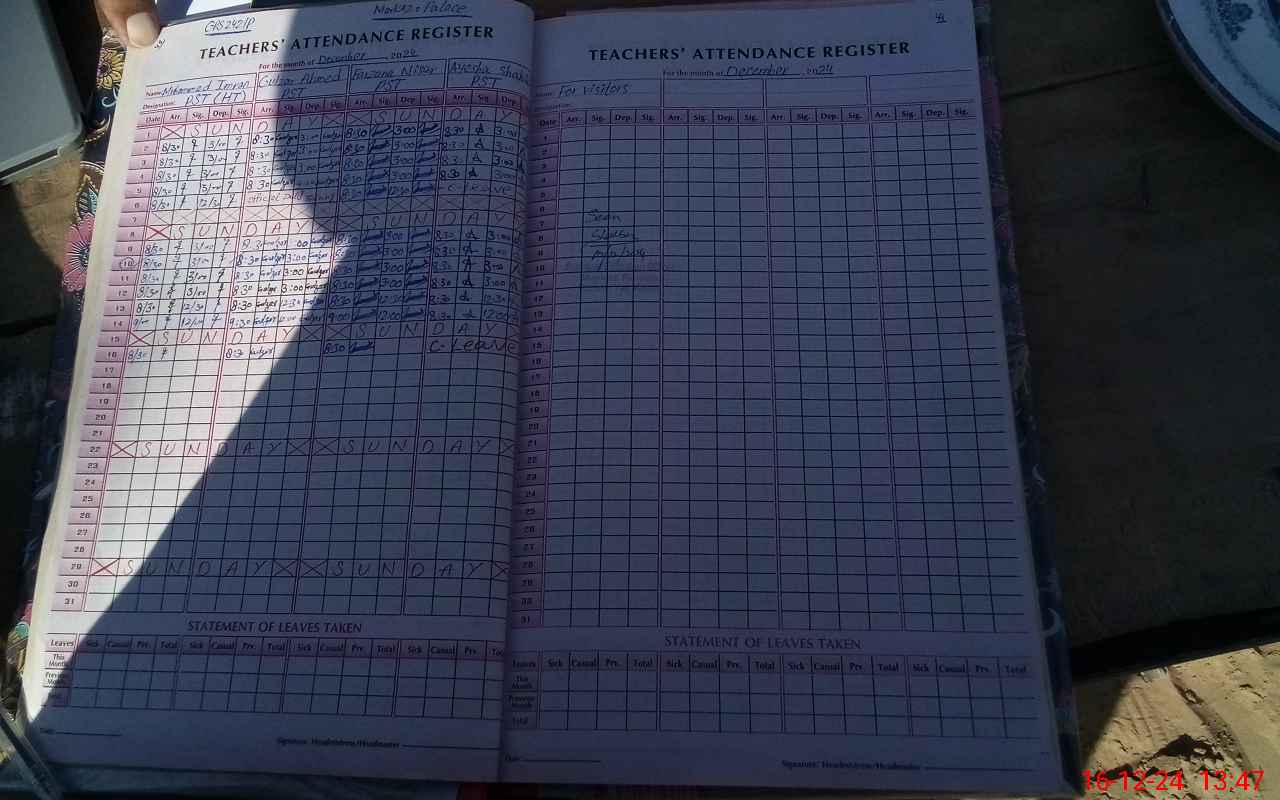 GPS 2421P
Markaz: Palace
TEACHERS' ATTENDANCE REGISTER
For the month of December 2024
Name: Mohammad Imran Gulzar Ahmed Farzana Nisar Ayesha
Designation: PST (HT) PST PST PST
Date Arr. Sig. Dep. Sig. Arr. Sig. Dep. Sig. Arr. Sig. Dep. Sig. Arr. Sig. Dep.
1 SUNDAY SUNDAY
2 8/30 3/00 8:30 3:00 8:30 3:00 8:30 3:00
3 8/30 3/00 8:30 3:00 8:30 3:00 8:30 3:00
4 8/30 3/00 8:30 3:00 8:30 3:00 8:30 3:00
5 8/30 3/00 8:30 3:00 8:30 3:00 8:30 3:00
6 8/30 12/30 official 8:30 12:30 C-Leave
7
8 SUNDAY SUNDAY
9 8/30 3/00 8:30 3:00 8:30 3:00 8:30 3:00
10 8/30 3/00 8:30 3:00 8:30 3:00 8:30 3:00
11 8/30 3/00 8:30 3:00 8:30 3:00 8:30 3:00
12 8/30 3/00 8:30 3:00 8:30 3:00 8:30 3:00
13 8/30 12/30 8:30 12:30 8:30 12:30 8:30 12:30
14 9/00 12/00 9:30 12:00 9:00 12:00 8:30 12:00
15 SUNDAY SUNDAY
16 8/30 8:30 8:30 C-Leave
17
18
19
20
21
22 SUNDAY SUNDAY
23
24
25
26
27
28
29 SUNDAY SUNDAY
30
31
STATEMENT OF LEAVES TAKEN
Leaves Sick Casual Prv. Total Sick Casual Prv. Total Sick Casual Prv. Total Sick Casual Prv.
This Month
Previous Month
Total
Date
Signature: Headmistress/Headmaster
TEACHERS' ATTENDANCE REGISTER
For the month of December, 2024
Name: For visitors
Designation:
Date Arr. Sig. Dep. Sig. Arr. Sig. Dep. Sig. Arr. Sig. Dep. Sig. Arr. Sig. Dep. Sig.
1
2
3
4
5
6
7
8
9
10
11
12
13
14
15
16
17
18
19
20
21
22
23
24
25
26
27
28
29
30
31
Seen
STATEMENT OF LEAVES TAKEN
Leaves Sick Casual Prv. Total Sick Casual Prv. Total Sick Casual Prv. Total Sick Casual Prv. Total
This Month
Previous Month
Total
Date
Signature: Headmistress/Headmaster
16-12-24 13:47